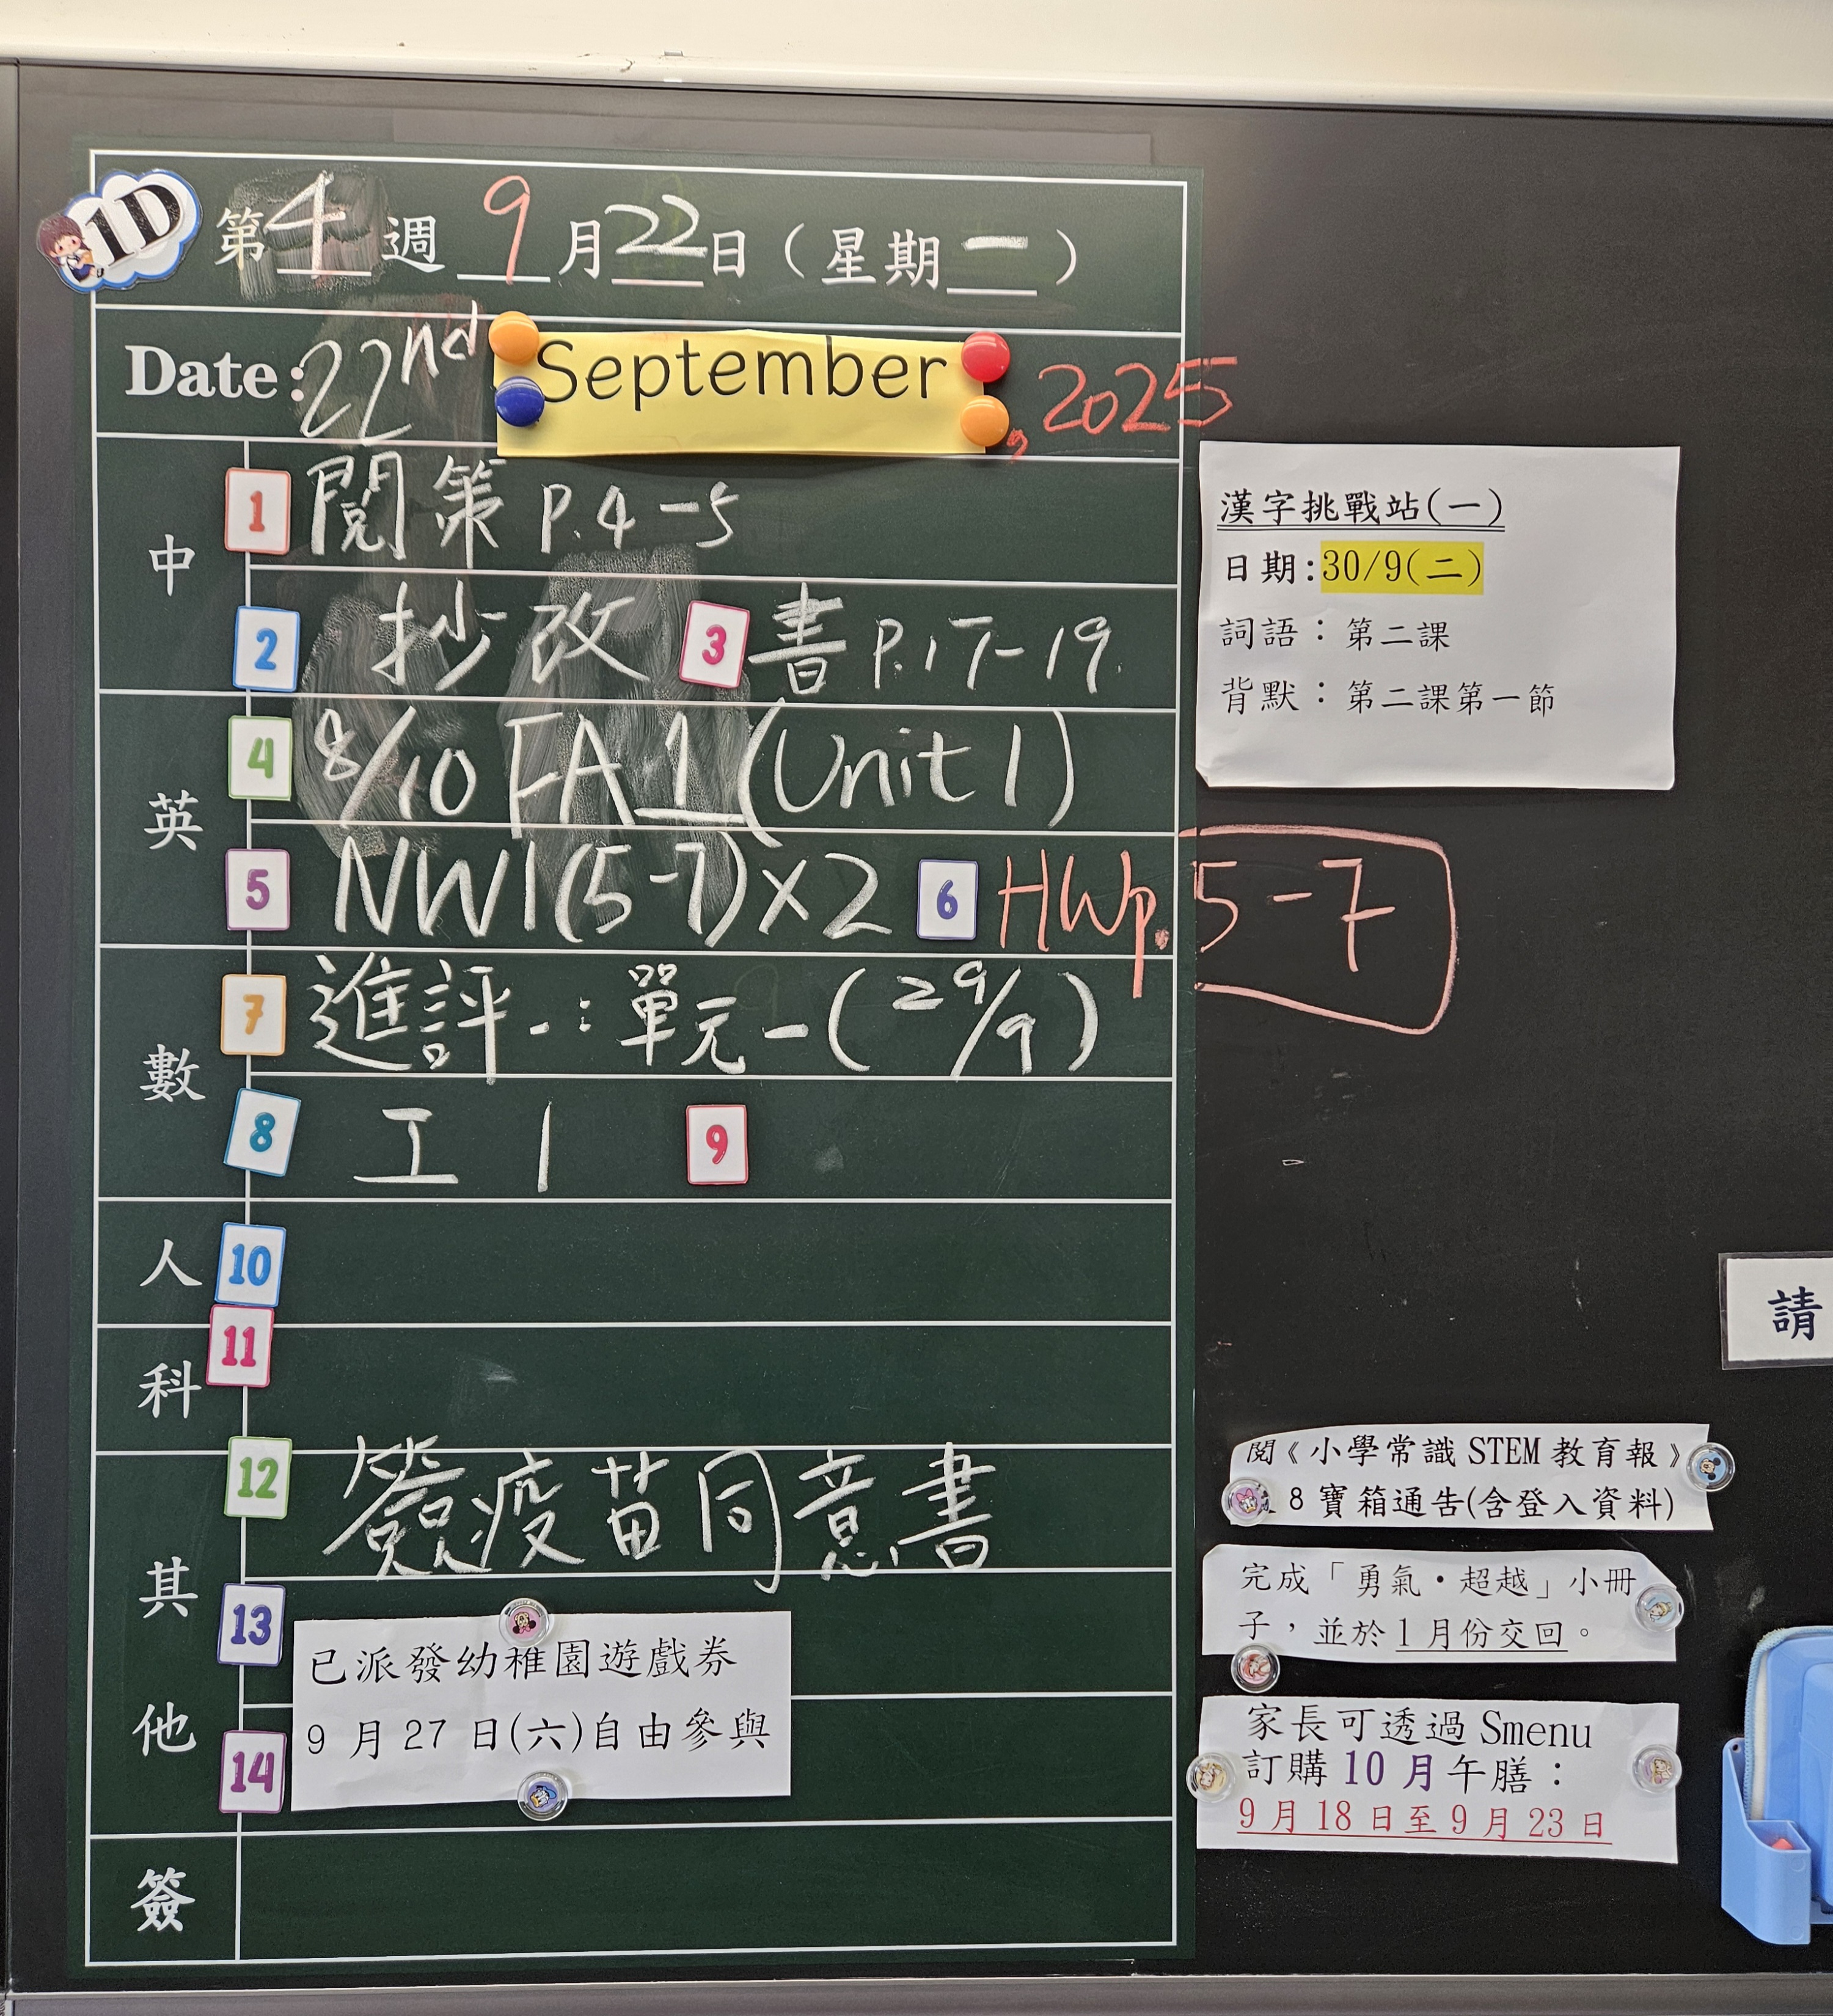 1D
第4週 9月22日(星期一)
Date: 22nd September, 2025
中
1 閱策 P.4-5
2 抄改 3 書 P.17-19.
英
4 8/10 FA 1 (Unit 1)
5 NW1(5-7)×2 6 HWp.5-7
數
7 進評一:單元一(29/9)
8 工1 9
人
10
科
11
其
12 簽疫苗同意書
他
13
14
已派發幼稚園遊戲券
9月27日(六)自由參與
簽
漢字挑戰站(一)
日期:30/9(二)
詞語:第二課
背默:第二課第一節
請
閱《小學常識STEM教育報》
8寶箱通告(含登入資料)
完成「勇氣・超越」小冊
子,並於1月份交回。
家長可透過Smenu
訂購10月午膳:
9月18日至9月23日